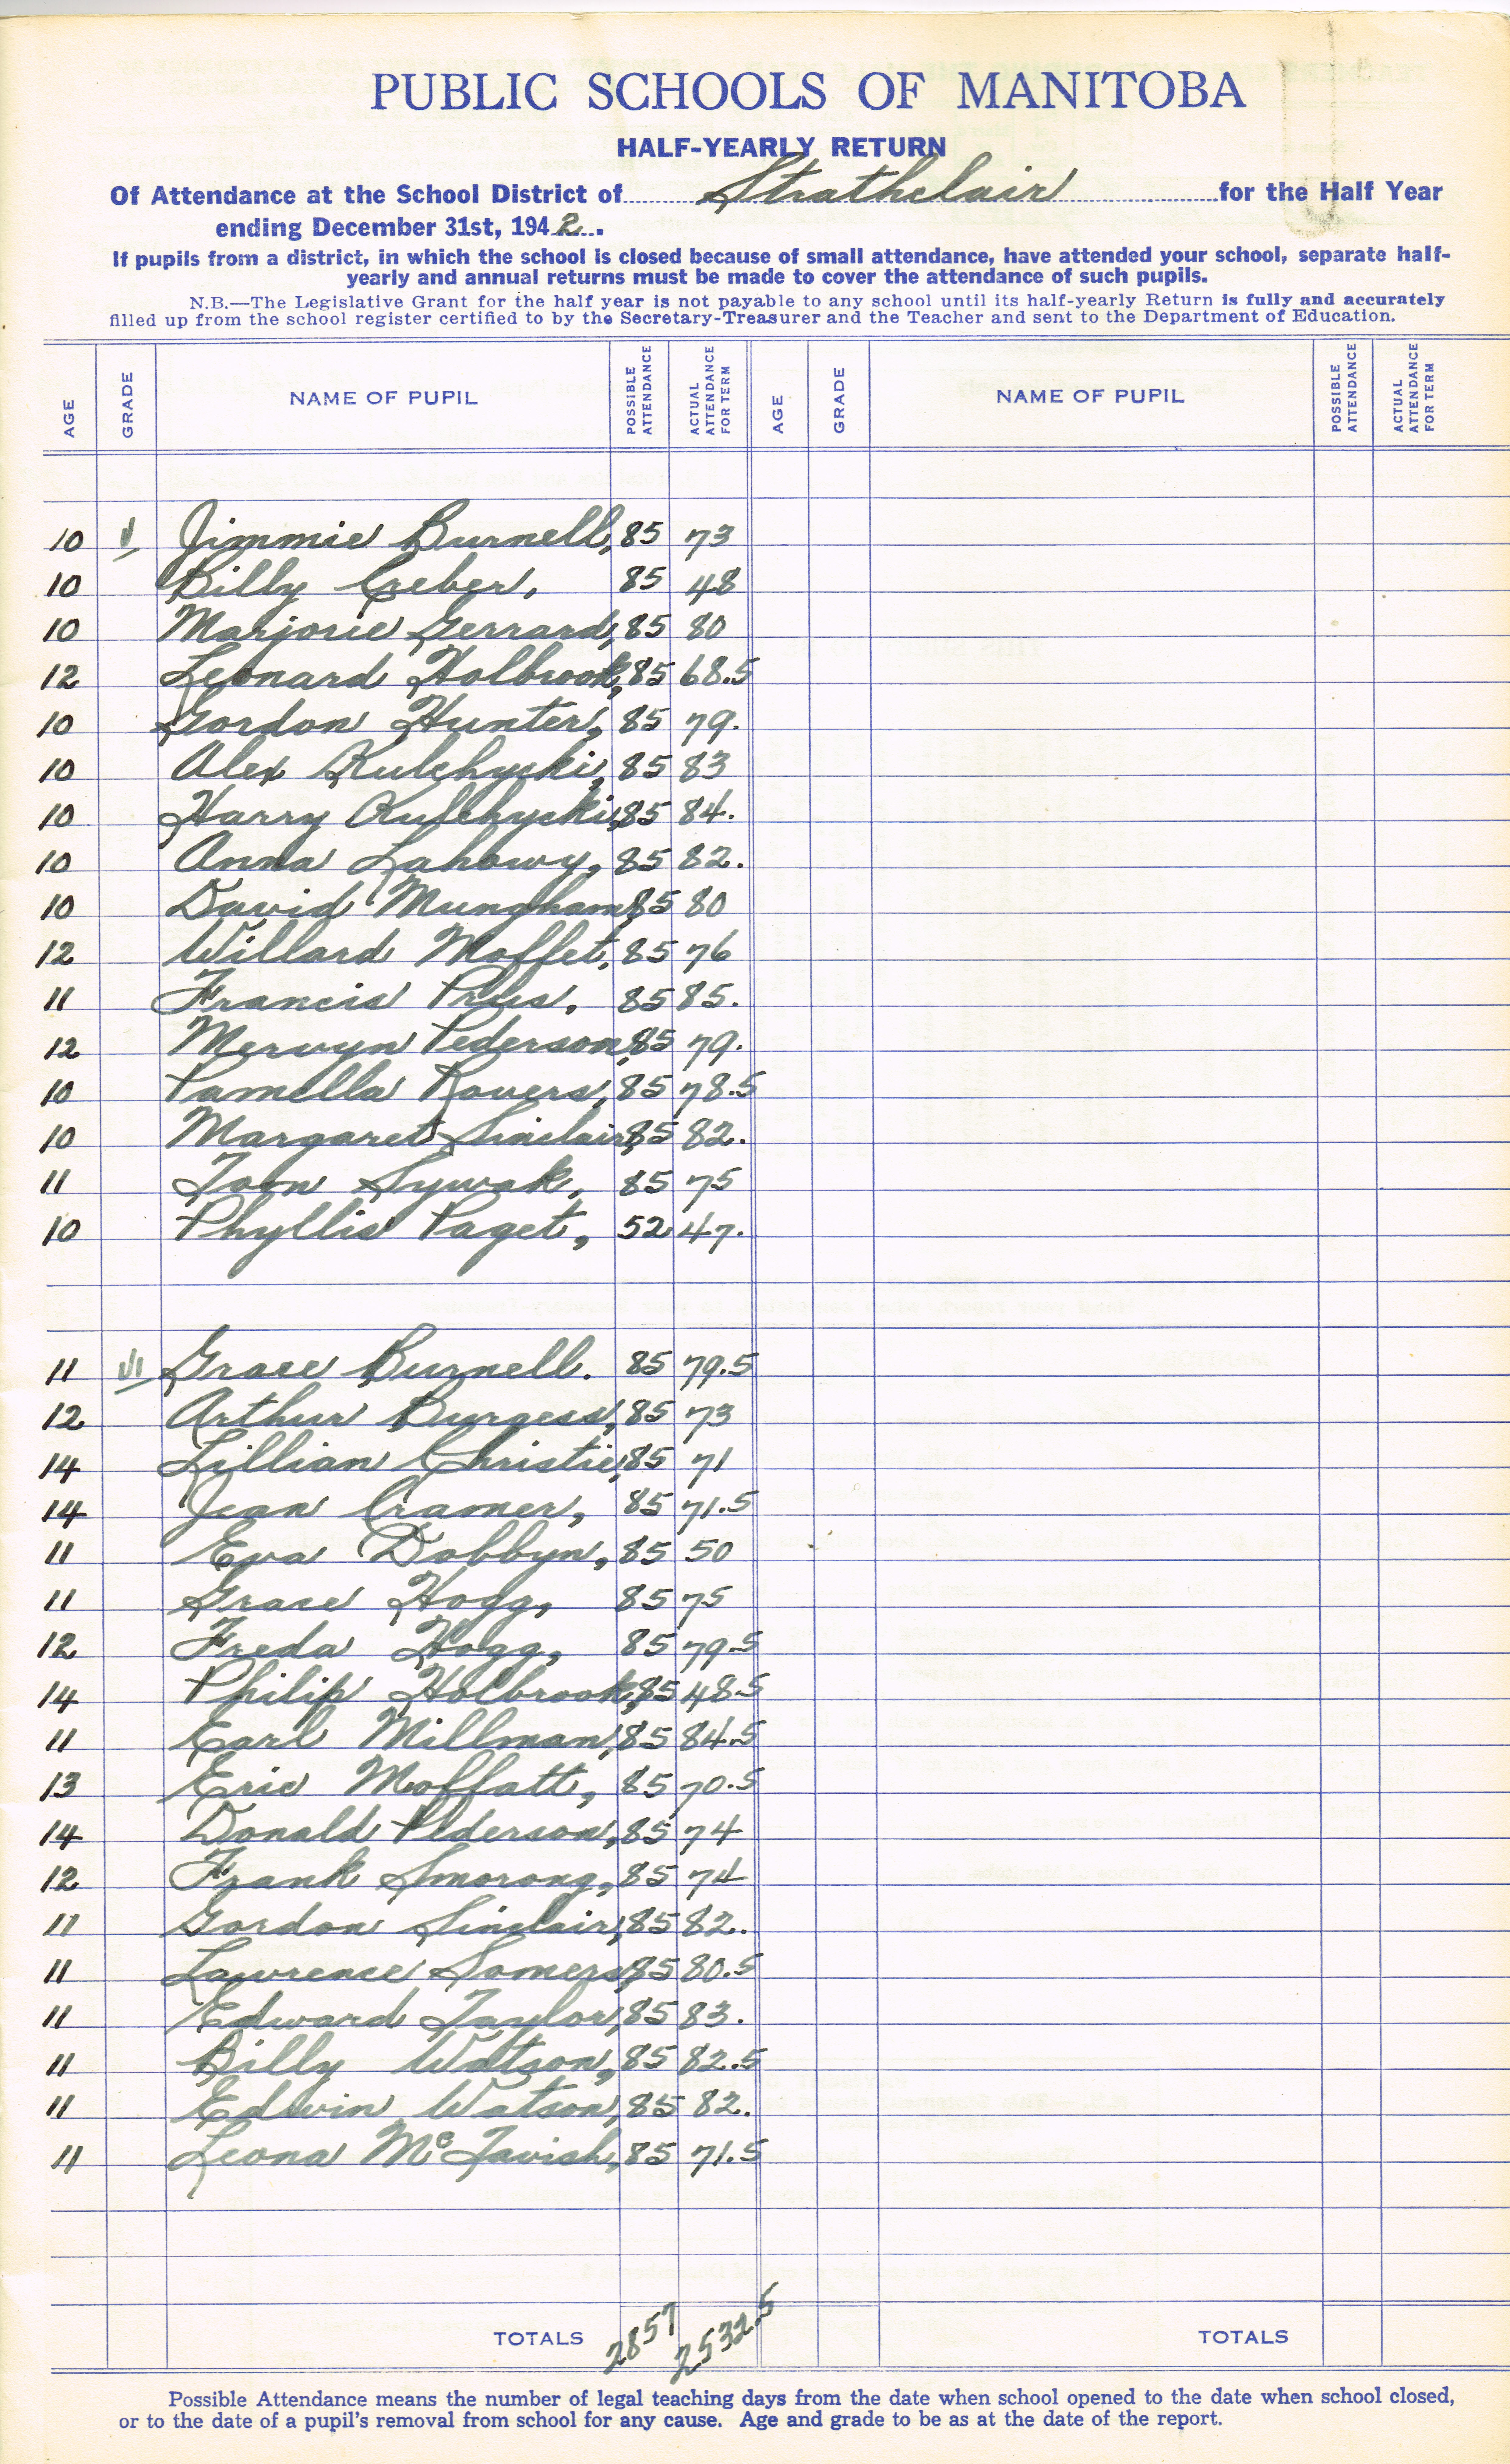 PUBLIC SCHOOLS OF MANITOBA
HALF-YEARLY RETURN
Of Attendance at the School District of Strathclair for the Half Year
ending December 31st, 1942.
If pupils from a district, in which the school is closed because of small attendance, have attended your school, separate half-
yearly and annual returns must be made to cover the attendance of such pupils.
N.B.—The Legislative Grant for the half year is not payable to any school until its half-yearly Return is fully and accurately
filled up from the school register certified to by the Secretary-Treasurer and the Teacher and sent to the Department of Education.
AGE GRADE NAME OF PUPIL POSSIBLE ATTENDANCE ACTUAL ATTENDANCE FOR TERM AGE GRADE NAME OF PUPIL POSSIBLE ATTENDANCE ACTUAL ATTENDANCE FOR TERM
10 V Jimmie Burnell, 85 73
10 Billy Creber, 85 48
10 Marjorie Gerrard, 85 80
12 Leonard Holbrook, 85 68.5
10 Gordon Hunter, 85 79.
10 Alex Kulchycki, 85 83
10 Harry Kulchycki, 85 84.
10 Anna Lahowy, 85 82.
10 David Mungham, 85 80
12 Willard Moffet, 85 76
11 Francis Prus, 85 85.
12 Mervyn Pederson, 85 79.
10 Pamella Rovers, 85 78.5
10 Margaret Sinclair, 85 82.
11 Tom Sywak, 85 75
10 Phyllis Paget, 52 47.
11 VI Grace Burnell. 85 79.5
12 Arthur Burgess, 85 73
14 Lillian Christie, 85 71
14 Jean Cramer, 85 71.5
11 Eva Dobbyn, 85 50
11 Grace Hogg, 85 75
12 Freda Hogg, 85 79.5
14 Philip Holbrook, 85 48.5
11 Earl Millman, 85 84.5
13 Eric Moffatt, 85 70.5
14 Donald Pederson, 85 74
12 Frank Smorong, 85 74
11 Gordon Sinclair, 85 82.
11 Lawrence Somers, 85 80.5
11 Edward Taylor, 85 83.
11 Billy Watson, 85 82.5
11 Edwin Watson, 85 82.
11 Leona McTavish, 85 71.5
TOTALS 2857 2532.5 TOTALS
Possible Attendance means the number of legal teaching days from the date when school opened to the date when school closed,
or to the date of a pupil's removal from school for any cause. Age and grade to be as at the date of the report.